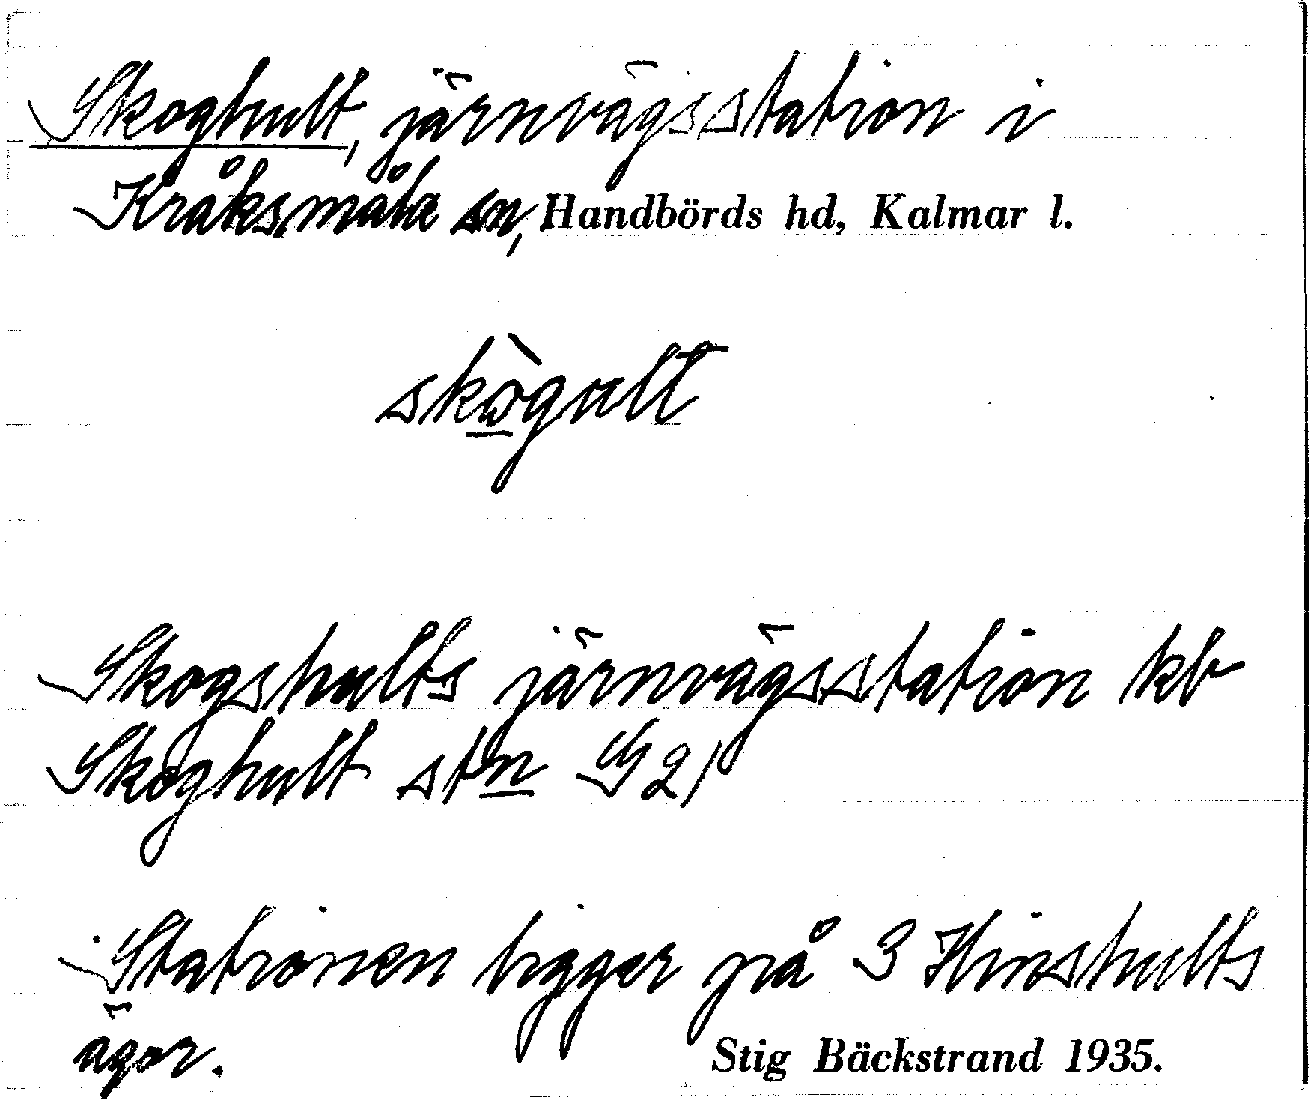 Skoghult, järnvägsstation i
Kråksmåla sn, Handbörds hd, Kalmar l.
skògult
Skogshults järnvägsstation kb
Skoghult stn G 21
Stationen ligger på S Hinshults
ägor. Stig Bäckstrand 1935.